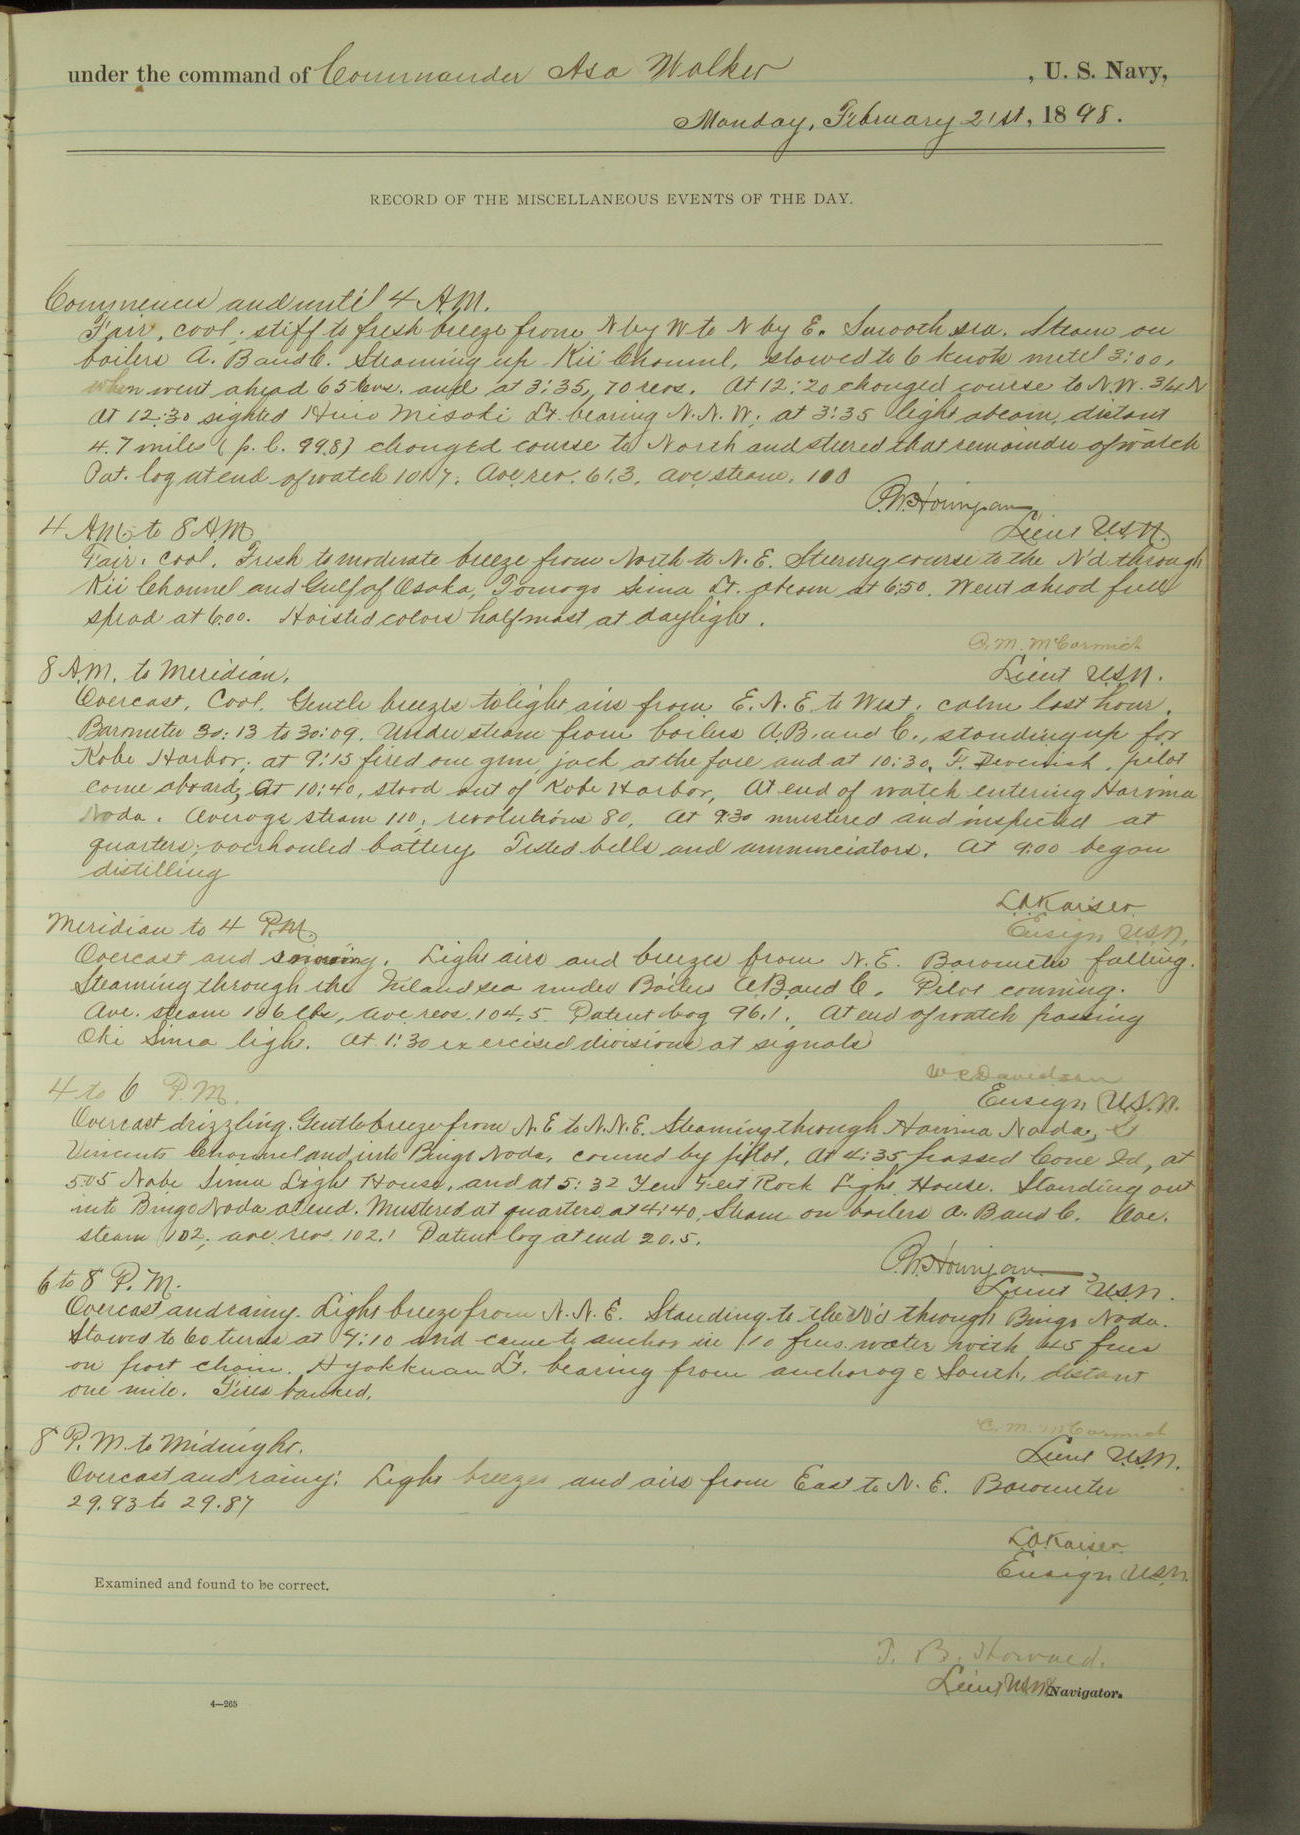 under the command of Commander Asa Walker, U. S. Navy,
Monday, February 21st, 1898.
RECORD OF THE MISCELLANEOUS EVENTS OF THE DAY.
Commences and until 4 A.M.
Fair, cool; stiff to fresh breeze from N by W to N by E. Smooth sea. Steam on
boilers A. B and C. Steaming up Kii Channel, slowed to 6 knots until 3:00,
when went ahead 65 revs. and at 3:35, 70 revs. At 12:20 changed course to N.W. 3/4 N
At 12:30 sighted Hino Misaki Lt. bearing N.N.W; at 3:35 light abeam, distant
4.7 miles (p. l. 99.8) changed course to North and steered that remainder of watch
Pat. log at end of watch 101.7. Ave. rev. 61.3, ave. steam, 100
Lieut U.S.N.
4 A.M. to 8 A.M.
Fair. Cool. Fresh to moderate breeze from North to N.E. Steering course to the N'd through
Kii Channel and Gulf of Osaka, Tomogo Sima Lt. abeam at 6:50. Went ahead full
speed at 6:00. Hoisted colors half mast at daylight.
C. M. McCormick
Lieut U.S.N.
8 A.M. to Meridian.
Overcast, Cool. Gentle breezes to light airs from E.N.E. to West; calm last hour.
Barometer 30:13 to 30:09. Under steam from boilers A.B. and C., standing up for
Kobe Harbor; at 9:15 fired one gun jack at the fore and at 10:30, F. pilot
came aboard; at 10:40, stood out of Kobe Harbor, At end of watch entering Harima
Nada. Average steam 110; revolutions 80. At 9:30 mustered and inspected at
quarters; overhauled battery Tested bells and annunciators. At 9:00 began
distilling
L.A. Kaiser
Ensign U.S.N.
Meridian to 4 P.M.
Overcast and snowing. Light airs and breezes from N.E. Barometer falling.
Steaming through the Inland sea under Boilers A B and C. Pilot conning.
Ave. steam 106 lbs, ave revs. 104.5 Patent log 96.1. At end of watch passing
Oki Sima light. At 1:30 exercised divisions at signals
W C Davidson
Ensign U.S.N.
4 to 6 P.M.
Overcast drizzling. Gentle breeze from N.E to N.N.E. Steaming through Harima Nada, St
Vincents Channel and into Bingo Nada, conned by pilot. At 4:35 passed Cone Id, at
5:05 Nabe Sima Light House, and at 5:32 Yen Feet Rock Light House. Standing out
into Bingo Nada at end. Mustered at quarters at 4:40. Steam on boilers A. B and C. Ave.
steam 102; ave revs. 102.1 Patent log at end 20.5.
Lieut U.S.N.
6 to 8 P.M.
Overcast and rainy. Light breeze from N.N.E. Standing to the W'd through Bingo Nada.
Slowed to 60 turns at 7:10 and came to anchor in 10 fms. water with 45 fms
on port chain. Hyakkuan Lt. bearing from anchorage South, distant
one mile. Fires banked.
C. M. McCormick
Lieut U.S.N.
8 P.M. to Midnight.
Overcast and rainy; Light breezes and airs from East to N.E. Barometer
29.93 to 29.87
L.A. Kaiser
Ensign U.S.N.
Examined and found to be correct.
T. B. Howard.
Lieut U.S.N. Navigator.
4—265